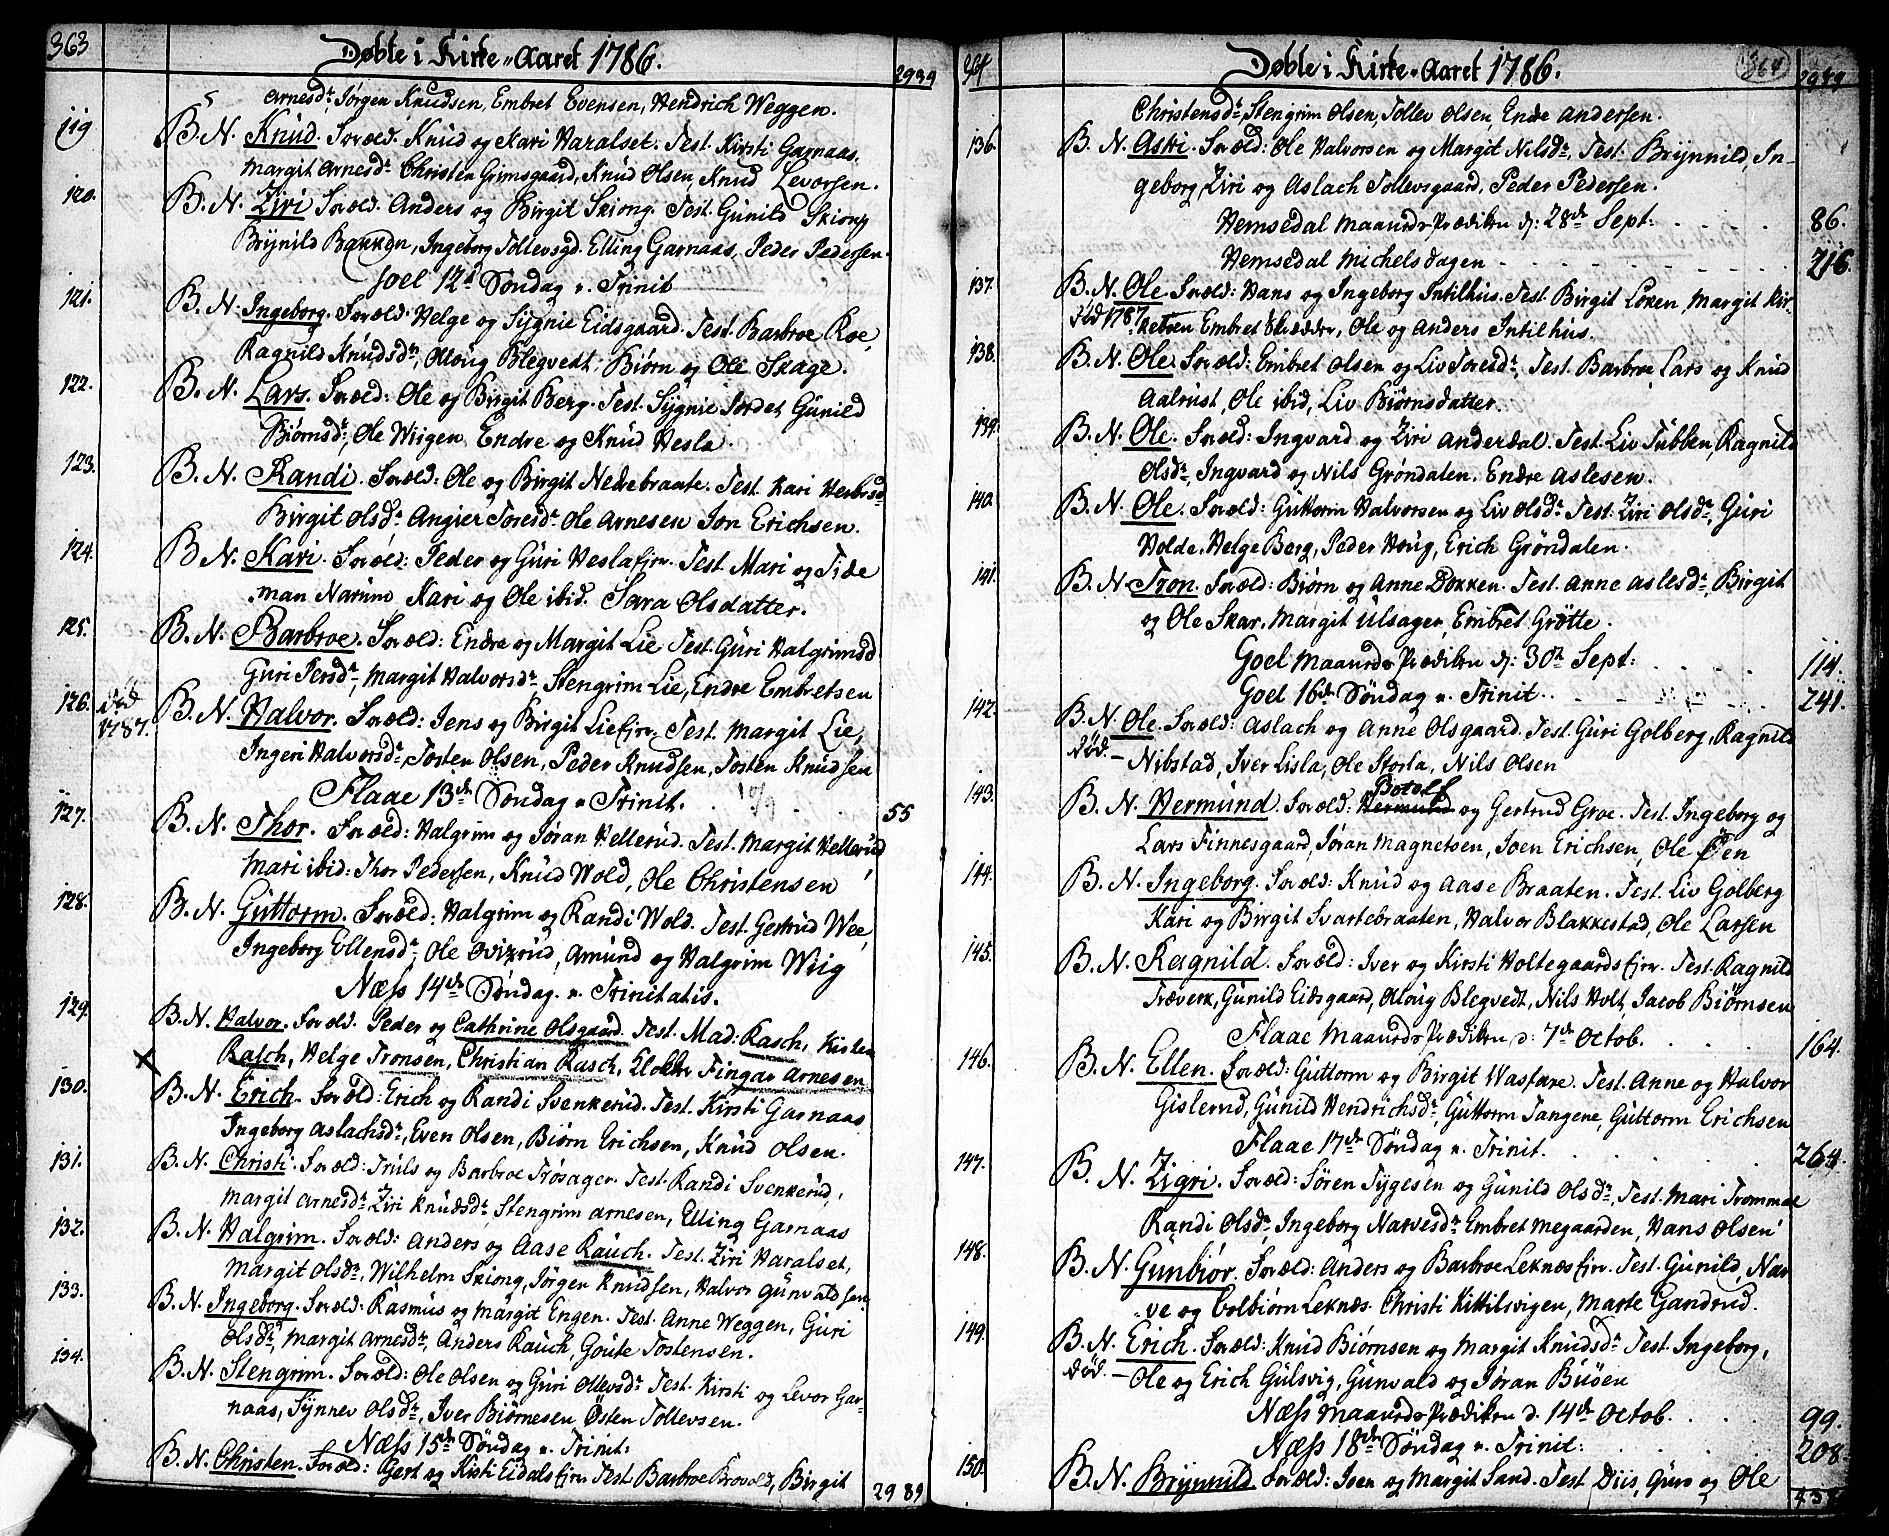 363
Døbte i Kirke-Aaret 1786.
2939
Arnesdr, Jørgen Knudsen, Embret Evensen, Hendrich Weggen.
119 B. N. Knud. Foræld: Knud og Kari Haralset. Test. Kirsti Garnaas,
Margit Arnesdr Christen Grimsgaard, Knud Olsen, Knud Levorsen.
120. B. N. Ziri Foræld: Anders og Birgit Skiong. Test. Gunild Skiong
Brynild Bakken, Ingeborg Tollevsgd. Elling Garnaas, Peder Pedersen.
Goel 12te Søndag n. Trinit
121. B. N. Ingeborg. Foræld: Helge og Sygnie Eidsgaard. Test. Barbroe Roe,
Ragnild Knudsdr, Olloug Blegvedt, Biørn og Ole Skage.
122. B. N. Lars. Foræld: Ole og Birgit Berg. Test. Sygnie Jordet Gunild
Biørnsdr, Ole Wiigen Endre og Knud Hesla.
123. B. N. Randi. Foræld: Ole og Birgit Nedrebraate. Test. Kari Herbrsd
Birgit Olsdr Angier Toresdr Ole Arnesen Jon Erichsen.
124. B. N. Kari. Foræld: Peder og Guri Heslaejer. Test. Mari og Tide
man Narum, Kari og Ole ibid. Sara Olsdatter.
125. B. N. Barbroe. Foræld: Endre og Margit Lie Test. Guri Halgrimsd
Guri Persdr, Margit Halvorsdr, Stengrim Lie, Endre Embretsen
126. død 1787. B. N. Halvor. Foræld: Jens og Birgit Lieejer. Test. Margit Lie,
Ingeri Halvorsdr, Tosten Olsen, Peder Knudsen, Tosten Knudsen
Flaae 13de Søndag n. Trinit.
55
127. B. N. Thor. Foræld: Halgrim og Jøran Hellerud. Test. Margit Hellerud,
Mari ibid: Thor Pedersen, Knud Wold, Ole Christensen
128. B. N. Guttorm. Foræld: Halgrim og Randi Wold. Test. Gertrud Wee,
Ingeborg Ellensdr, Ole Qvizrud, Amund og Halgrim Wiig
Næss 14de Søndag. n. Trinitatis.
129. B. N. Halvor. Foræld. Peder og Cathrine Olsgaard. Test. Mad: Rasch, Kisten
Rasch, Helge Tronsen, Christian Rasch, Klokker Fingar Arnesen
130. B. N. Erich. Foræld: Erich og Randi Svenkerud. Test. Kirsti Garnaas
Ingeborg Aslachsdr, Even Olsen, Biørn Erichsen, Knud Olsen.
131. B. N. Christi. Foræld: Truls og Barbroe Trøsager. Test. Randi Svenkerud,
Margit Arnesdr, Ziri Knudsdr, Stengrim Arnesen, Elling Garnaas
132. B. N. Halgrim. Foræld: Anders og Aase Rauch. Test. Ziri Haralset,
Margit Olsdr, Wilhelm Skiong, Jørgen Knudsen, Halvor Gunvaldsen
133. B. N. Ingeborg. Foræld: Rasmus og Margit Engen. Test. Anne Weggen, Guri
Olsdr, Margit Arnesdr, Anders Rauch, Goute Tostensen.
134. B. N. Stengrim. Foræld: Ole Olsen og Guri Ollevsdr Test. Kirsti og Levor Gar-
naas, Synnev Olsdr, Iver Biørnesen Østen Tollevsen.
Næss 15de Søndag n. Trinit:
B. N. Christen. Foræld: Gert og Kisti Eidalsejer Test Barbroe Brovold, Birgit
2989
364
Døbte i Kirke-Aaret 1786.
364
2989
Christensdr, Stengrim Olsen, Tollev Olsen, Endre Andersen.
136. B. N. Aski. Foræld: Ole Halvorsen og Margit Nilsdr, Test. Brynnild, In-
geborg, Ziri og Aslach Tollevsgaard, Peder Pedersen.
Hemsedal Maaneds Prædiken d: 28de Sept: 86.
Hemsedal Michelsdagen 216.
137. B. N. Ole. Foræld: Hans og Ingeborg Intilhus. Test. Birgit Løken, Margit Kir-
død 1787 kebøen Embret Skrædder, Ole og Anders Intilhus.
138. B. N. Ole. Foræld: Embret Olsen og Liv Toresdr, Test. Barbroe, Lars og Knud
Aalrust, Ole ibid, Liv Biørnsdatter.
139. B. N. Ole. Foræld: Ingvard og Ziri Anderdal. Test. Liv Tubben, Ragnild
Olsdr, Ingvard og Nils Grøndalen. Endre Aslesen.
140. B. N. Ole. Foræld: Guttorm Halvorsen og Liv Olsdr Test. Ziri Olsdr, Guri
Holde, Helge Berg, Peder Houg, Erich Grøndalen.
141. B. N. Tron. Foræld: Biørn og Anne Dokken. Test. Anne Aslesdr, Birgit
og Ole Skar. Margit Ulsager, Embret Grøtte.
Goel Maaneds Prædiken d: 30te Sept: 114.
Goel 16de Søndag n. Trinit. 241.
142. B. N. Ole. Foræld: Aslach og Anne Olsgaard. Test. Guri Golberg, Ragnild
død. — Nibstad, Iver Lisla, Ole Storla, Nils Olsen
143. B. N. Hermund. Foræld: Hermund Botolf og Gertrud Groe. Test. Ingeborg og
Lars Finnesgaard, Jøran Magnetsen, Joen Erichsen, Ole Øen
144. B. N. Ingeborg. Foræld: Knud og Aase Braaten. Test. Liv Golberg
Kari og Birgit Svartebraaten, Halvor Blakkestad, Ole Larsen
145. B. N. Ragnild. Foræld: Iver og Kirsti Holtegaardsejer. Test. Ragnild
Træverk, Gunild Eidsgaard, Olloug Blegvedt, Nils Holt, Jacob Biørnsen
Flaae Maaneds Prædiken d. 7de Octob. 164.
146. B. N. Ellen. Foræld: Guttorm og Birgit Wasfare. Test. Anne og Halvor
Gislerud, Gunild Hendrichsdr, Guttorm Tangene, Guttorm Erichsen
Flaae 17de Søndag n. Trinit. 264.
147. B. N. Zigri. Foræld: Søren Tygesen og Gunild Olsdr, Test. Mari Trommal
Randi Olsdr, Ingeborg Narvesdr Embret Megaarden, Hans Olsen
148. B. N. Gunbiør. Foræld: Anders og Barbroe Leknæsejer. Test. Gunild, Nar
ve og Colbiørn Leknæs. Christi Kittilsvigen, Marte Gandrud.
149. B. N. Erich. Foræld: Knud Biørnsen og Margit Knudsdr Test. Ingeborg,
død. — Ole og Erich Gulsvig, Gunvald og Jøran Buøen
Næss Maaneds Prædiken d. 14de Octob. 99.
Næss 18de Søndag n. Trinit: 208.
150. B. N. Brynnild. Foræld: Iven og Margit Sand. Test Diis, Guro og Ole